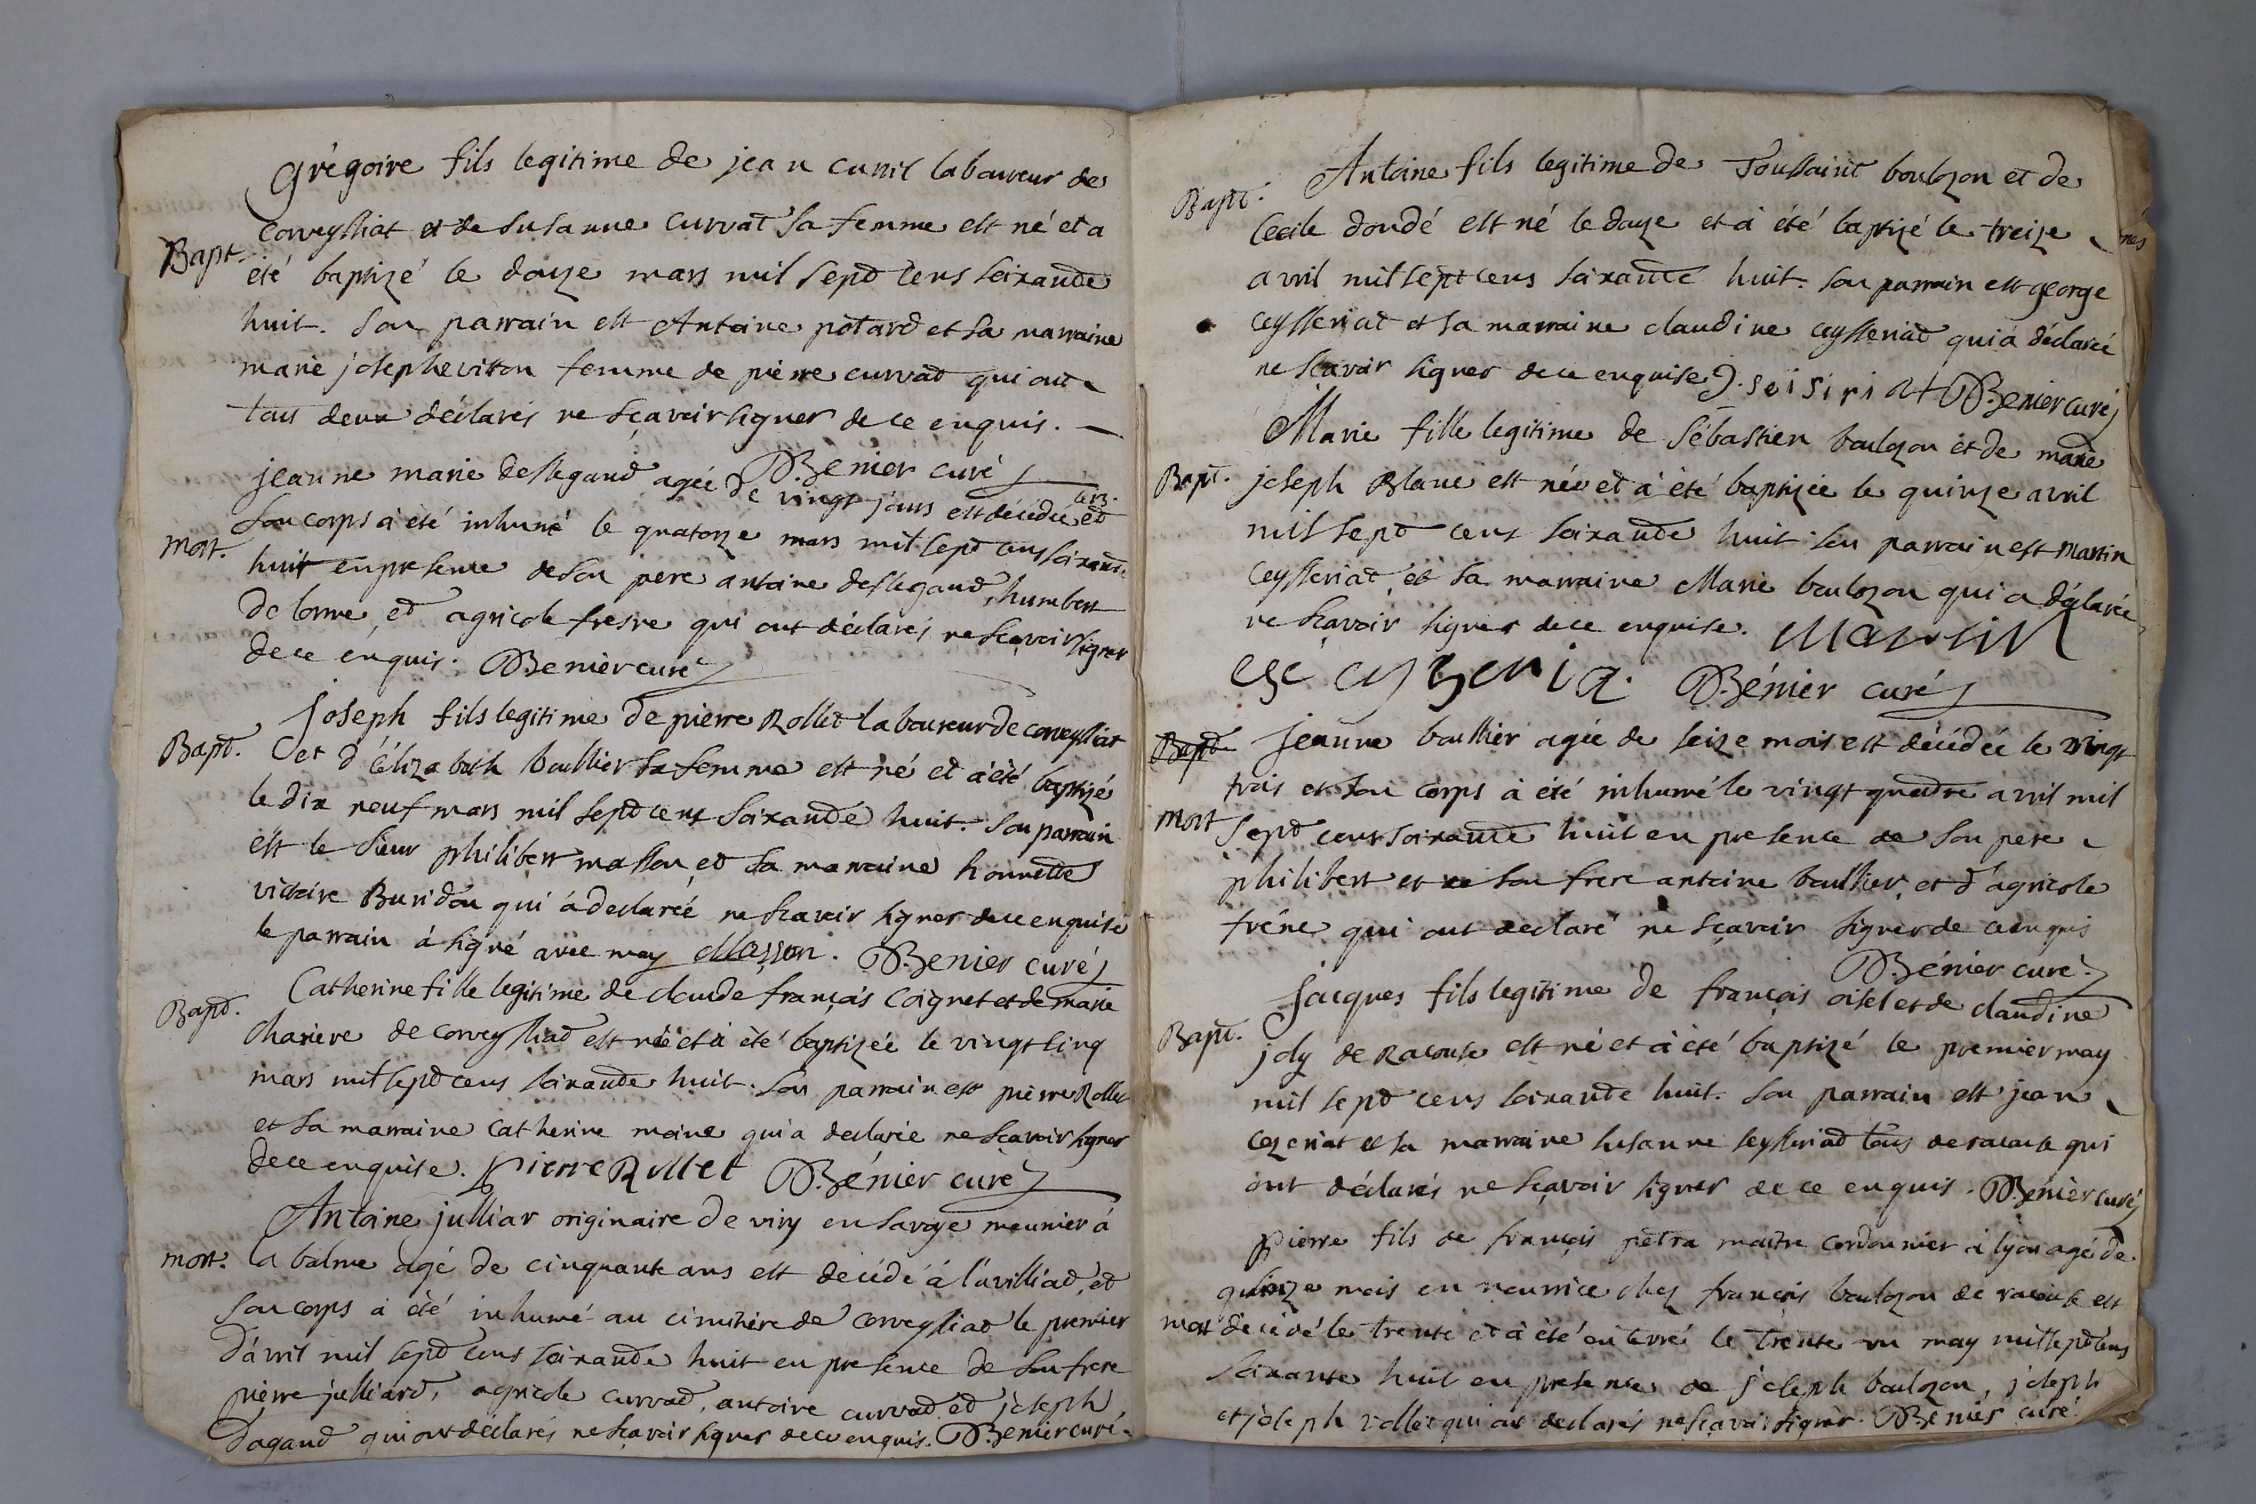 Grégoire fils legitime de jean cunit laboureur de
Bapt. corveyssiat et de susanne curvat sa femme est né et a
été baptizé le douze mars mil sept cens soixante
huit. son parrain est Antoine potard et sa marraine
marie josephe vitton femme de pierre curvat qui ont
tous deux déclarés ne sçavoir signer de ce enquis.
Bénier curé
jeanne marie deslegaud agée de vingt jours est décédée le 13. et
mort. son corps à été inhumé le quatorze mars mil sept cens soixante
huit en presence de son pere antoine deslegaud, humbert
delorme, et agricole fresne qui ont déclarés ne sçavoir signer
de ce enquis. Bénier curé
Joseph fils legitime de pierre Rollet laboureur de corveyssiat
Bapt. et d'élizabeth boullier sa femme est né et à été baptizé
le dix neuf mars mil sept cens soixante huit. son parrain
est le sieur philibert masson et sa marraine honnette
victoire Buridon qui à declarée ne sçavoir signer de ce enquise
le parrain à signé avec moy Masson. Bénier curé
Catherine fille legitime de claude françois Coignet et de marie
Bapt. chariere de corveyssiat est née et à été baptizée le vingt cinq
mars mil sept cens soixante huit. son parrain est pierre Rollet
et sa marraine catherine moine qui a declarée ne sçavoir signer
de ce enquise. pierre Rollet Bénier curé
Antoine julliar originaire de viry en savoye meunier à
mort. la balme agé de cinquante ans est decédé à luvilliat, et
son corps à été inhumé au cimitière de corveyssiat le premier
d'avril mil sept cens soixante huit en presence de son frere
pierre julliard, agricole curvat, antoine curvat et joseph
dagand qui ont déclarés ne sçavoir signer de ce enquis. Bénier curé.
Antoine fils legitime de Toussaint boulozon et de
Bapt. Cecile dondé est né le douze et à été baptizé le treize
avril mil sept cens soixante huit. son parrain est george
ceysseriat et sa marraine claudine ceysseriat qui à déclarée
ne sçavoir signer de ce enquise. J. seisiriat Bénier curé
Marie fille legitime de Sébastien boulozon et de marie
Bapt. joseph Blanc est née et à été baptizée le quinze avril
mil sept cens soixante huit son parrain est martin
ceysseriat et sa marraine Marie boulozon qui a déclarée
ne sçavoir signer de ce enquise. Martin
Bénier curé
Bapt. Jeanne boullier agée de seize mois est décédée le vingt
trois et son corps à été inhumé le vingt quatre avril mil
mort sept cens soixante huit en presence de son pere
philibert et de son frere antoine boullier, et d'agricole
frêne qui ont declaré ne sçavoir signer de ce enquis
Bénier curé
Jacques fils legitime de françois oisel et de claudine
Bapt. joly de Racouse est né et à été baptizé le premier may
mil sept cens soixante huit. son parrain est jean
cezeriat et sa marraine susanne seysseriat tous de racouse qui
ont déclarés ne sçavoir signer de ce enquis. Bénier curé
pierre fils de françois petra maitre cordonnier à lyon agé de
quinze mois en nourrice chez françois boulozon de racouse est
mort décédé le trente et à été enterré le trente un may mil sept cens
soixante huit en presence de joseph boulozon, joseph
et joseph rollet qui ont declarés ne sçavoir signer. Bénier curé.